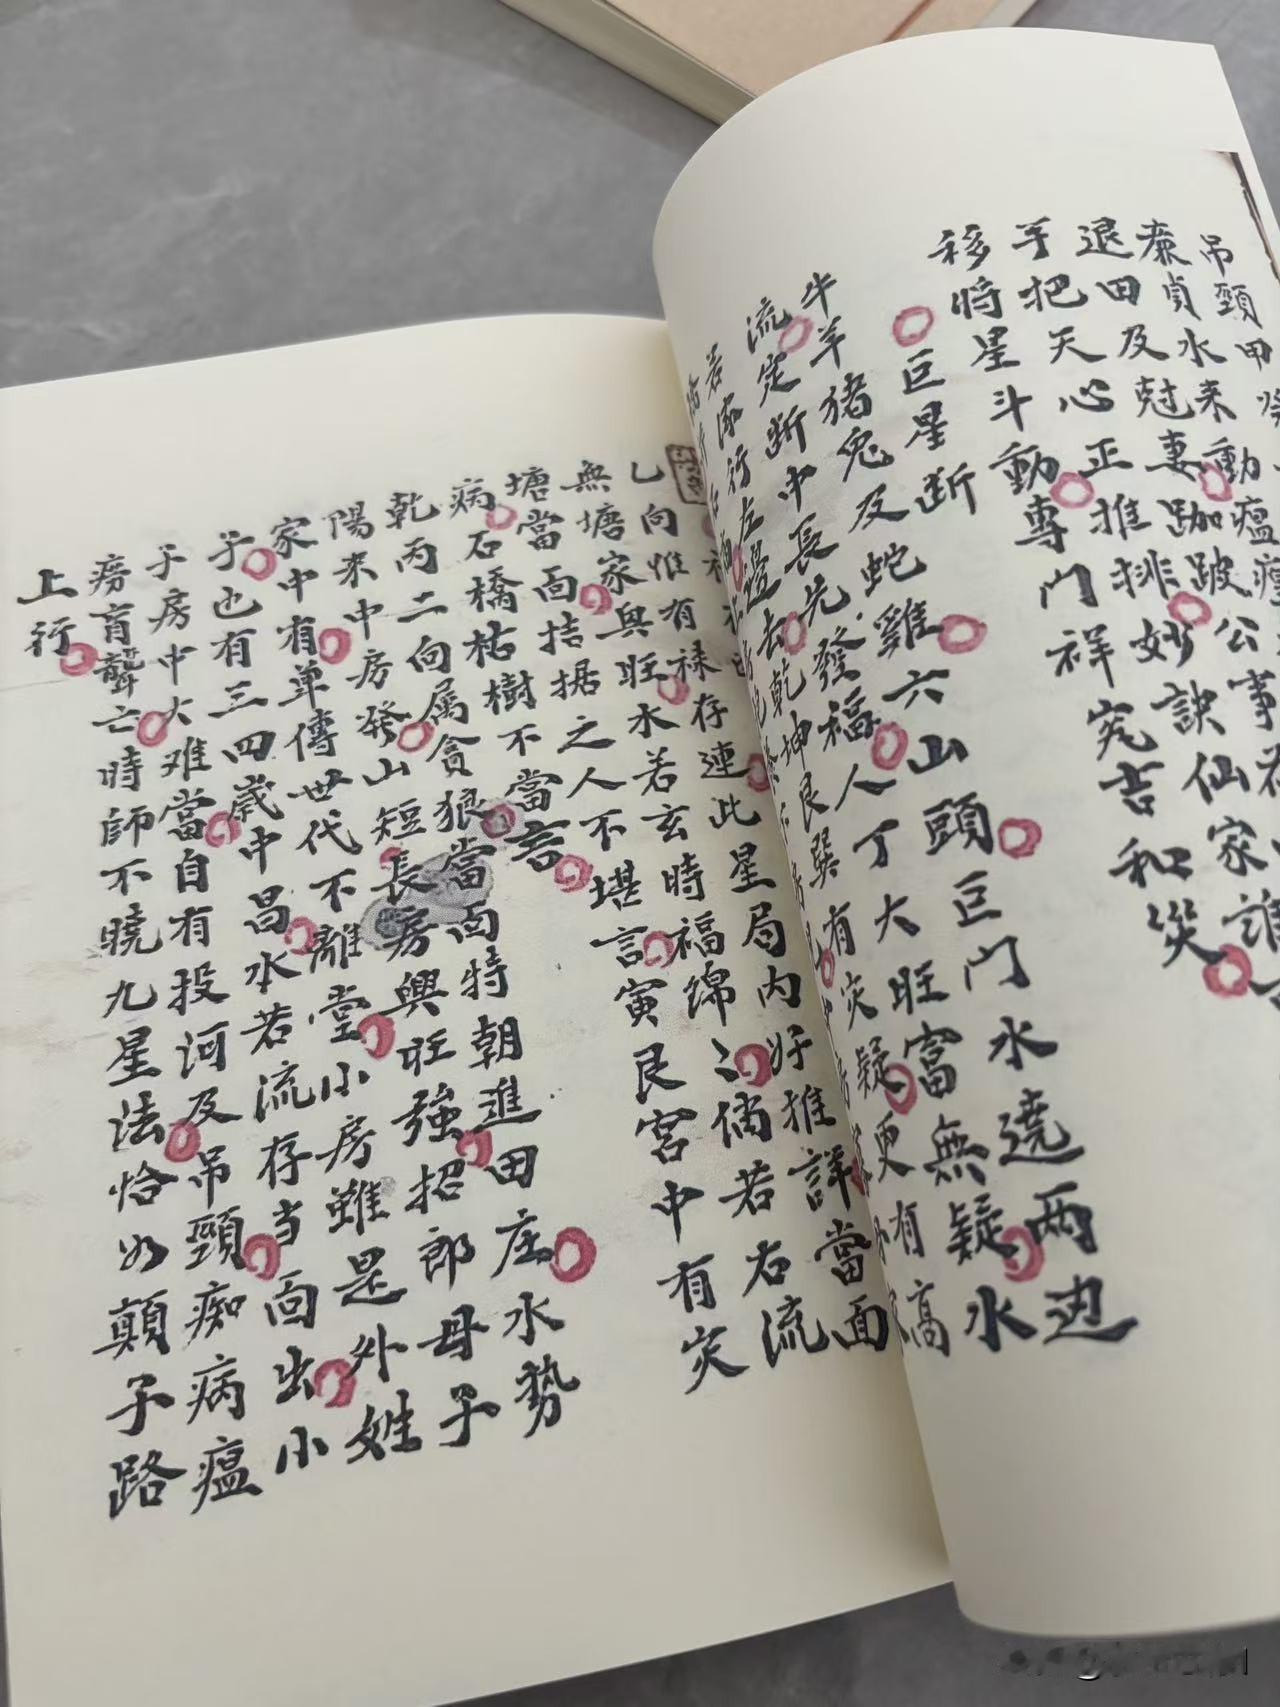 吊頸甲癸
廉貞水来動瘟
退田及尅妻跏跛公事若
手把天心正推排妙訣仙家誰
移時星斗動專門祥究吉和災
巨星断
牛羊猪兔及蛇雞六山頭巨門水遶两边
流定断中長先發福人丁大旺富無疑水
若行左邊去乾坤艮巽有灾疑更有高
乙向惟有禄存連此星局内好推詳當面
無塘家興旺水若玄時福綿〻倘若右流
塘當面拮据之人不堪言寅艮宮中有灾
病石橋枯樹不當言
乾丙二向属貪狼當面特朝進田庄水势
陽来中房發山短長房興旺強招郎母子
家中有单傳世代不離堂小房雖是外姓
子也有三四歳中昌水若流存当面出小
子房中大难當自有投河及吊頸痴病瘟
痨盲聾亡時師不曉九星法恰如顛子路
上行